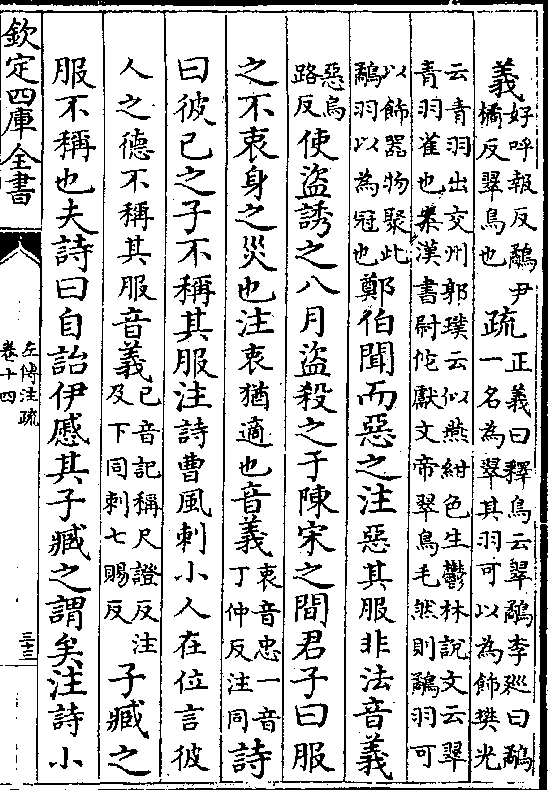 義好呼報反鷸尹橘反翠鳥也疏正義曰釋鳥云翠鷸李廵曰鷸一名為翠其羽可以為飾樊光
云青羽出交州郭璞云似燕紺色生鬱林說文云翠
青羽雀也案漢書尉佗獻文帝翠鳥毛然則鷸羽可
以飾器物聚此鷸羽以為冠也鄭伯聞而惡之注惡其服非法音義
惡烏路反使盜誘之八月盜殺之于陳宋之間君子曰服
之不衷身之災也注衷猶適也音義衷音忠一音丁仲反注同詩
曰彼己之子不稱其服注詩曹風刺小人在位言彼
人之德不稱其服音義己音記稱尺證反注及下同刺七賜反子臧之
服不稱也夫詩曰自詒伊慼其子臧之謂矣注詩小
欽定四庫全書
左傳注疏
卷十四
三十三